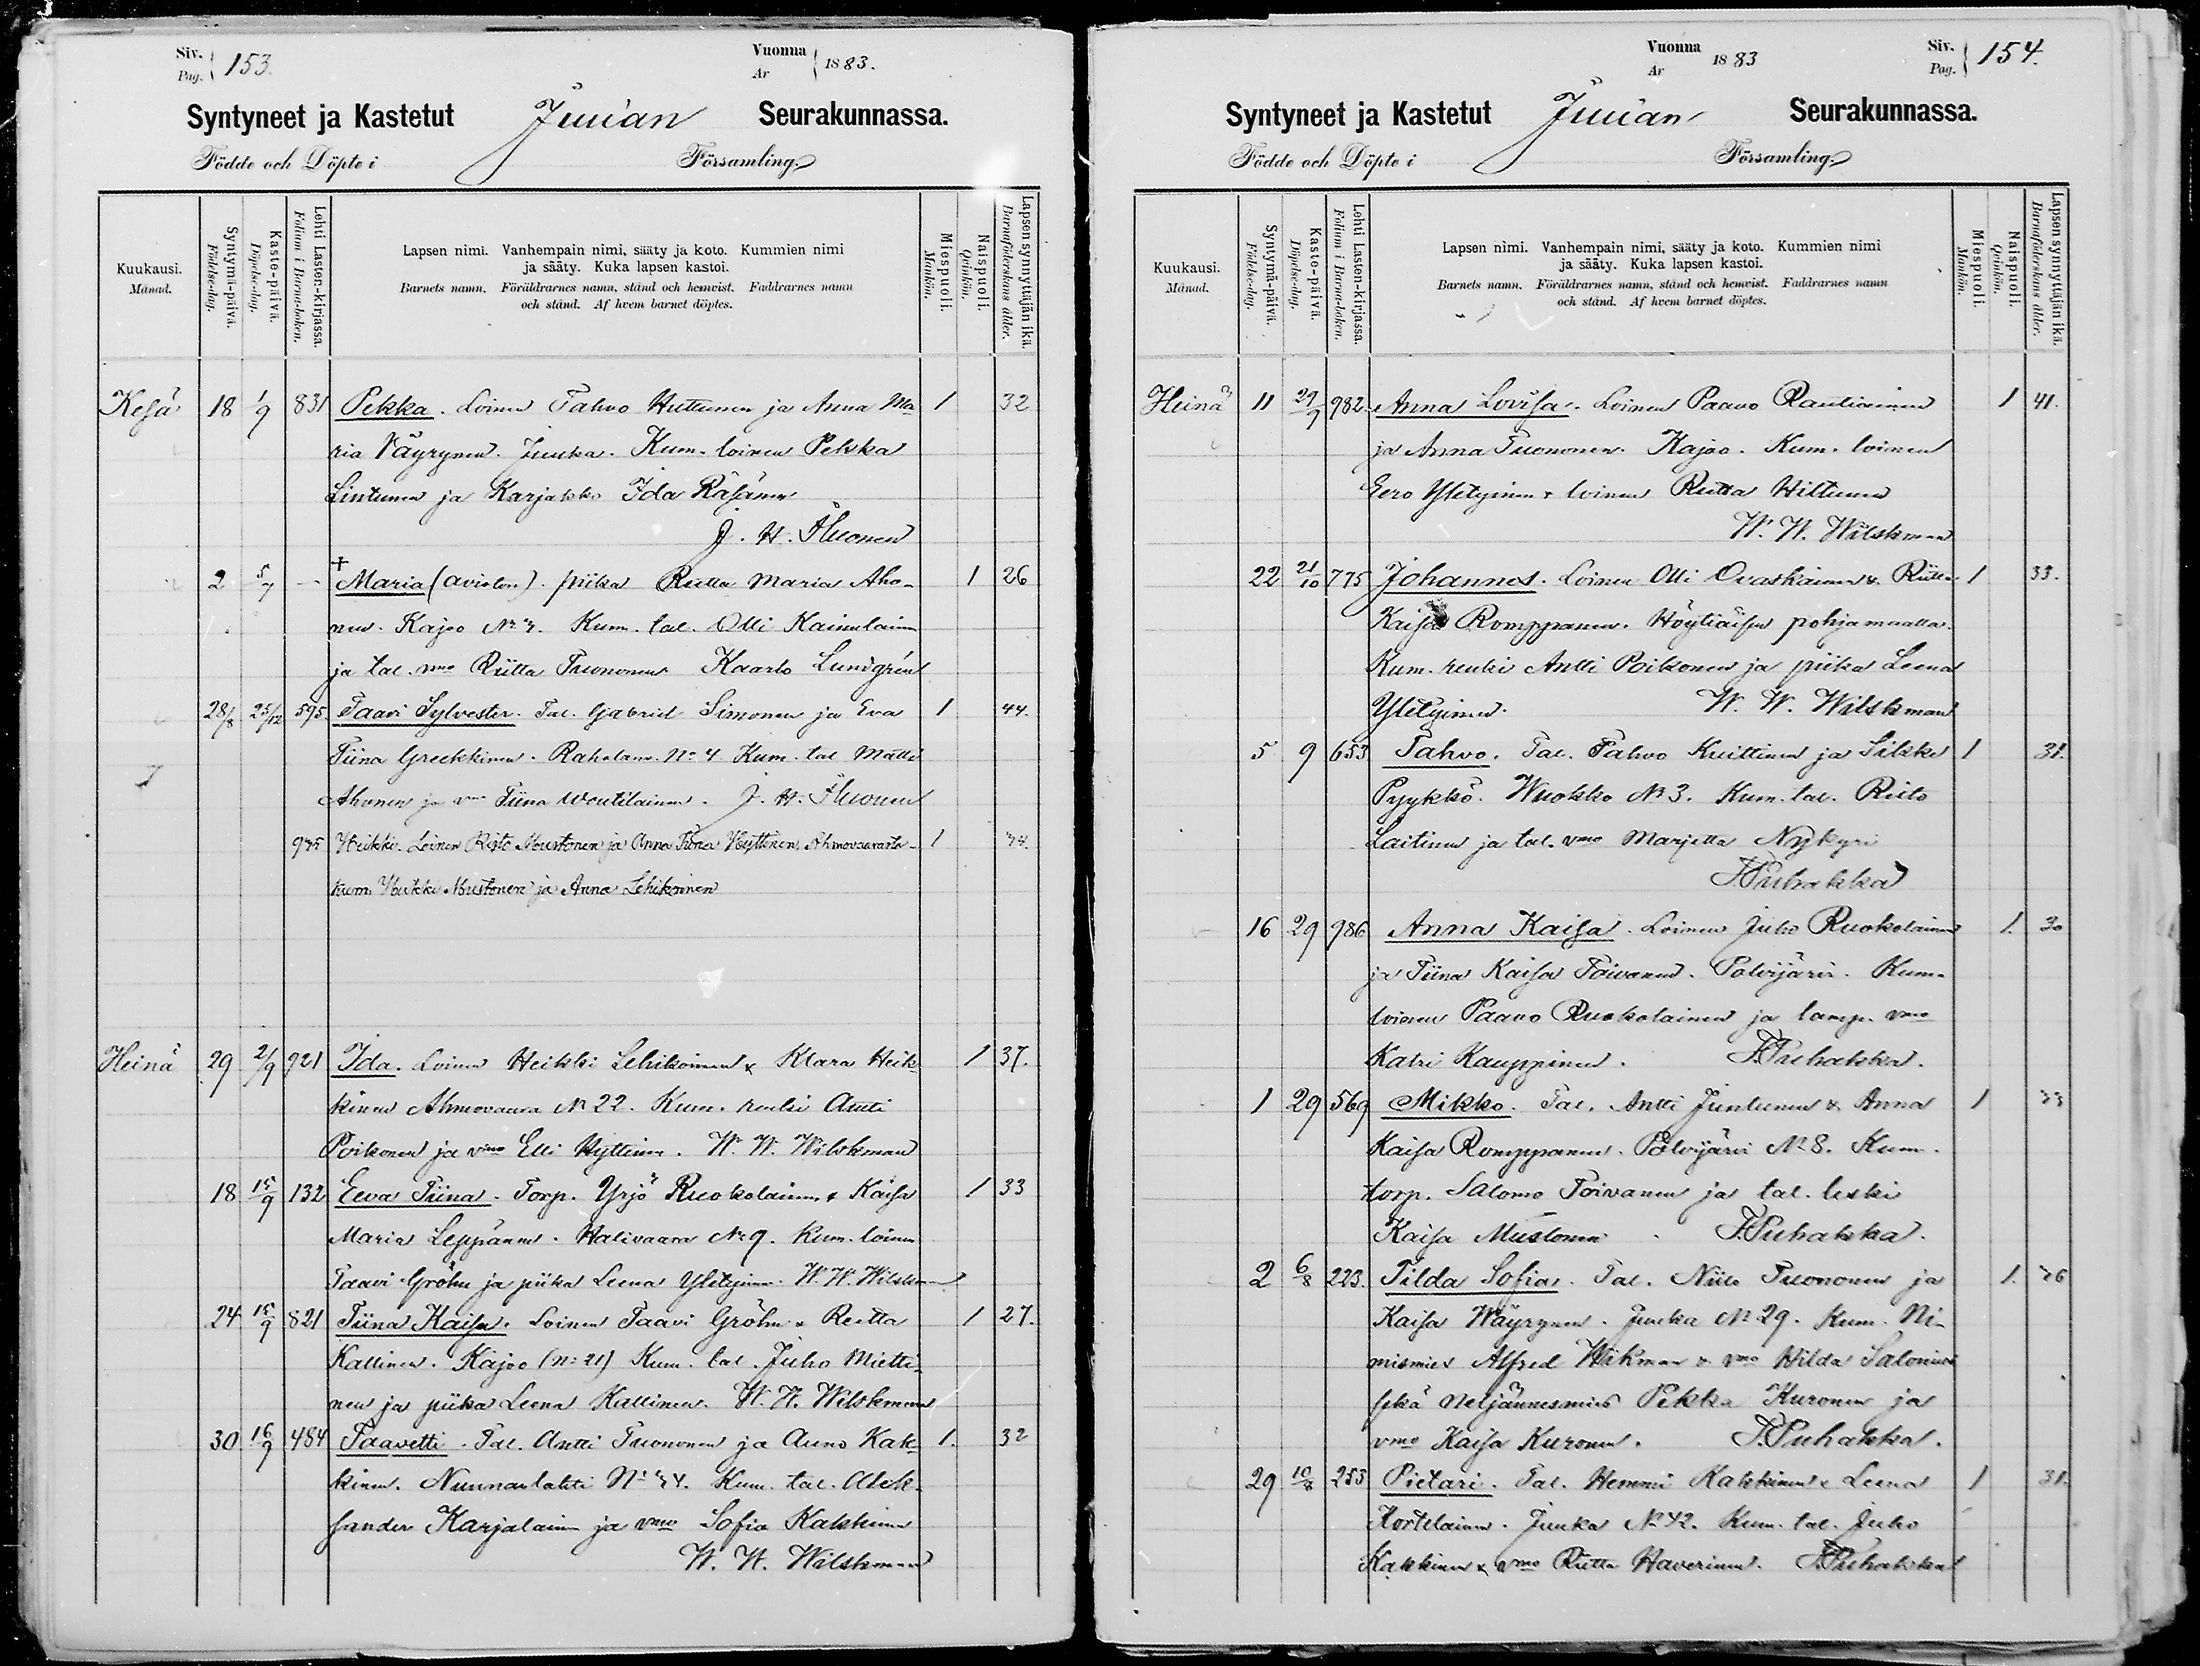 Siv. Pag. 153.
Vuonna Ar 1883.
Syntyneet ja Kastetut Juuan Seurakunnassa.
Födde och Döpte i Församling.
Kuukausi. Månad.
Syntymä-päivä. Födelse-dag.
Kaste-päivä. Döpelse-dag.
Lehti Lasten-kirjassa. Folium i Barna-boken.
Lapsen nimi. Vanhempain nimi, sääty ja koto. Kummien nimi
ja sääty. Kuka lapsen kastoi.
Barnets namn. Föräldrarnes namn, stånd och hemvist. Faddrarnes namn
och stånd. Af hvem barnet döptes.
Miespuoli. Mankön.
Naispuoli. Qvinkön.
Lapsen synnyttäjän ikä. Barnaföderskans ålder.
Kesä 18 1/9 831 Pekka. Loinen Tahvo Huttunen ja Anna Ma 1 32
ria Väyrynen. Juuka. Kum. loinen Pekka
Lintunen ja Karjakko Ida Räsänen
J. H.
2 5/7 - † Maria (avioton). piika Riitta Maria Aho- 1 26
nen. Kajoo No 7. Kum. tal. Olli Kainulainen
ja tal. vmo Riitta Tuononen Kaarlo Lundgrén
28/8 25/12 595 Taavi Sylvester. Tal. Gabriel Simonen ja Eva 1 44.
Tiina Greekkinen. Rahola No 4 Kum. tal Matti
Ahonen ja vmo Tiina Woutilainen. J. H.
975 Heikki. Loinen Risto Mustonen ja Anna Hyttinen, Ahmovaara 1
kum. Heikki Mustonen ja Anna Lehikoinen
Heinä 29 2/9 921 Ida. Loinen Heikki Lehikoinen & Klara Heik- 1 37.
kinen Ahmovaara No 22. Kum. renki Antti
Poikonen ja vmo Elli Hyttinen. W. W. Wilskman
18 15/9 132 Eeva Tiina. Torp. Yrjö Ruokolainen & Kaisa 1 33
Maria Leppänen. Halivaara No 9. Kum. loinen
Taavi Gröhn ja piika Leena Yletyinen. W. W. Wilskman
24 15/9 821 Tiina Kaisa. Loinen Taavi Gröhn & Reetta 1 27.
Kallinen. Kajoo (No 21) Kum. tal. Juho Mietti-
nen ja piika Leena Kallinen. W. W. Wilskman
30 16/9 484 Taavetti. Tal. Antti Tuononen ja Anna Kak- 1. 32
kinen. Nunnanlahti No 34. Kum. tal. Alek-
sander Karjalainen ja vmo Sofia Kakkinen
W. W. Wilskman
Vuonna Ar 1883
Siv. Pag. 154.
Syntyneet ja Kastetut Juuan Seurakunnassa.
Födde och Döpte i Församling.
Kuukausi. Månad.
Syntymä-päivä. Födelse-dag.
Kaste-päivä. Döpelse-dag.
Lehti Lasten-kirjassa. Folium i Barna-boken.
Lapsen nimi. Vanhempain nimi, sääty ja koto. Kummien nimi
ja sääty. Kuka lapsen kastoi.
Barnets namn. Föräldrarnes namn, stånd och hemvist. Faddrarnes namn
och stånd. Af hvem barnet döptes.
Miespuoli. Mankön.
Naispuoli. Qvinkön.
Lapsen synnyttäjän ikä. Barnaföderskans ålder.
Heinä 11 29/9 982 Anna Lovisa. Loinen Paavo Rautiainen 1 41.
ja Anna Tuononen. Kajoo. Kum. loinen
Eero Yletyinen & loinen Riitta Hiltunen
W. W. Wilskman
22 21/10 775 Johannes. Loinen Olli Ovaskainen & Riitta 1 33.
Kaisa Romppanen. Höytiäisen pohjamaalla.
Kum. renki Antti Poikonen ja piika Leena
Yletyinen. W. W. Wilskman
5 9 653 Tahvo. Tal. Tahvo Kuittinen ja Silkka 1 31.
Pyykkö. Wuokko No 3. Kum. tal. Risto
Laitinen ja tal. vmo Marjetta Nykyri
J. Puhakka
16 29 986 Anna Kaisa. Loinen Juho Ruokolainen 1. 30
ja Tiina Kaisa Toivanen. Polvijärvi. Kum.
loinen Paavo Ruokolainen ja lamp. vmo
Katri Kauppinen. J. Puhakka.
1 29 569 Mikko. Tal. Antti Juntunen & Anna 1 33
Kaisa Romppanen. Polvijärvi No 8. Kum.
torp. Salomo Toivanen ja tal. leski
Kaisa Mustonen. J. Puhakka.
2 6/8 223. Tilda Sofia. Tal. Niilo Tuononen ja 1. 36
Kaisa Wäyrynen. Juuka No 29. Kum. Ni-
mismies Alfred Wikman & vmo Hilda Salonius
sekä neljännesmies Pekka Kuronen ja
vmo Kaisa Kuronen. J. Puhakka.
29 10/8 253 Pietari. Tal. Hemmi Kakkinen & Leena 1 31.
Kortelainen. Juuka No 42. Kum. tal. Juho
Kakkinen & vmo Riitta Haverinen. J. Puhakka